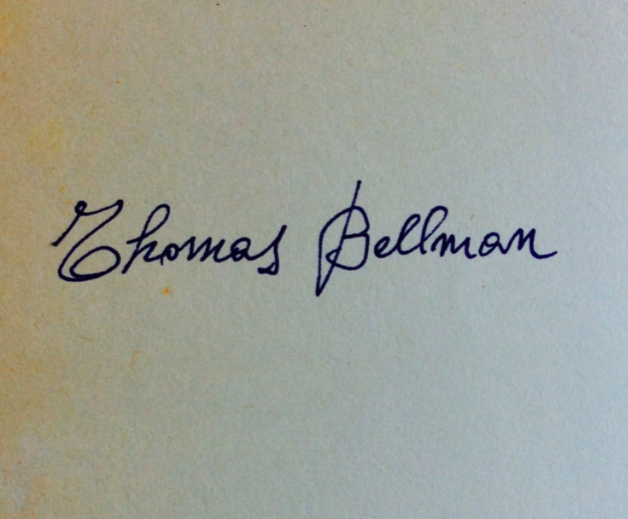 Thomas Bellman